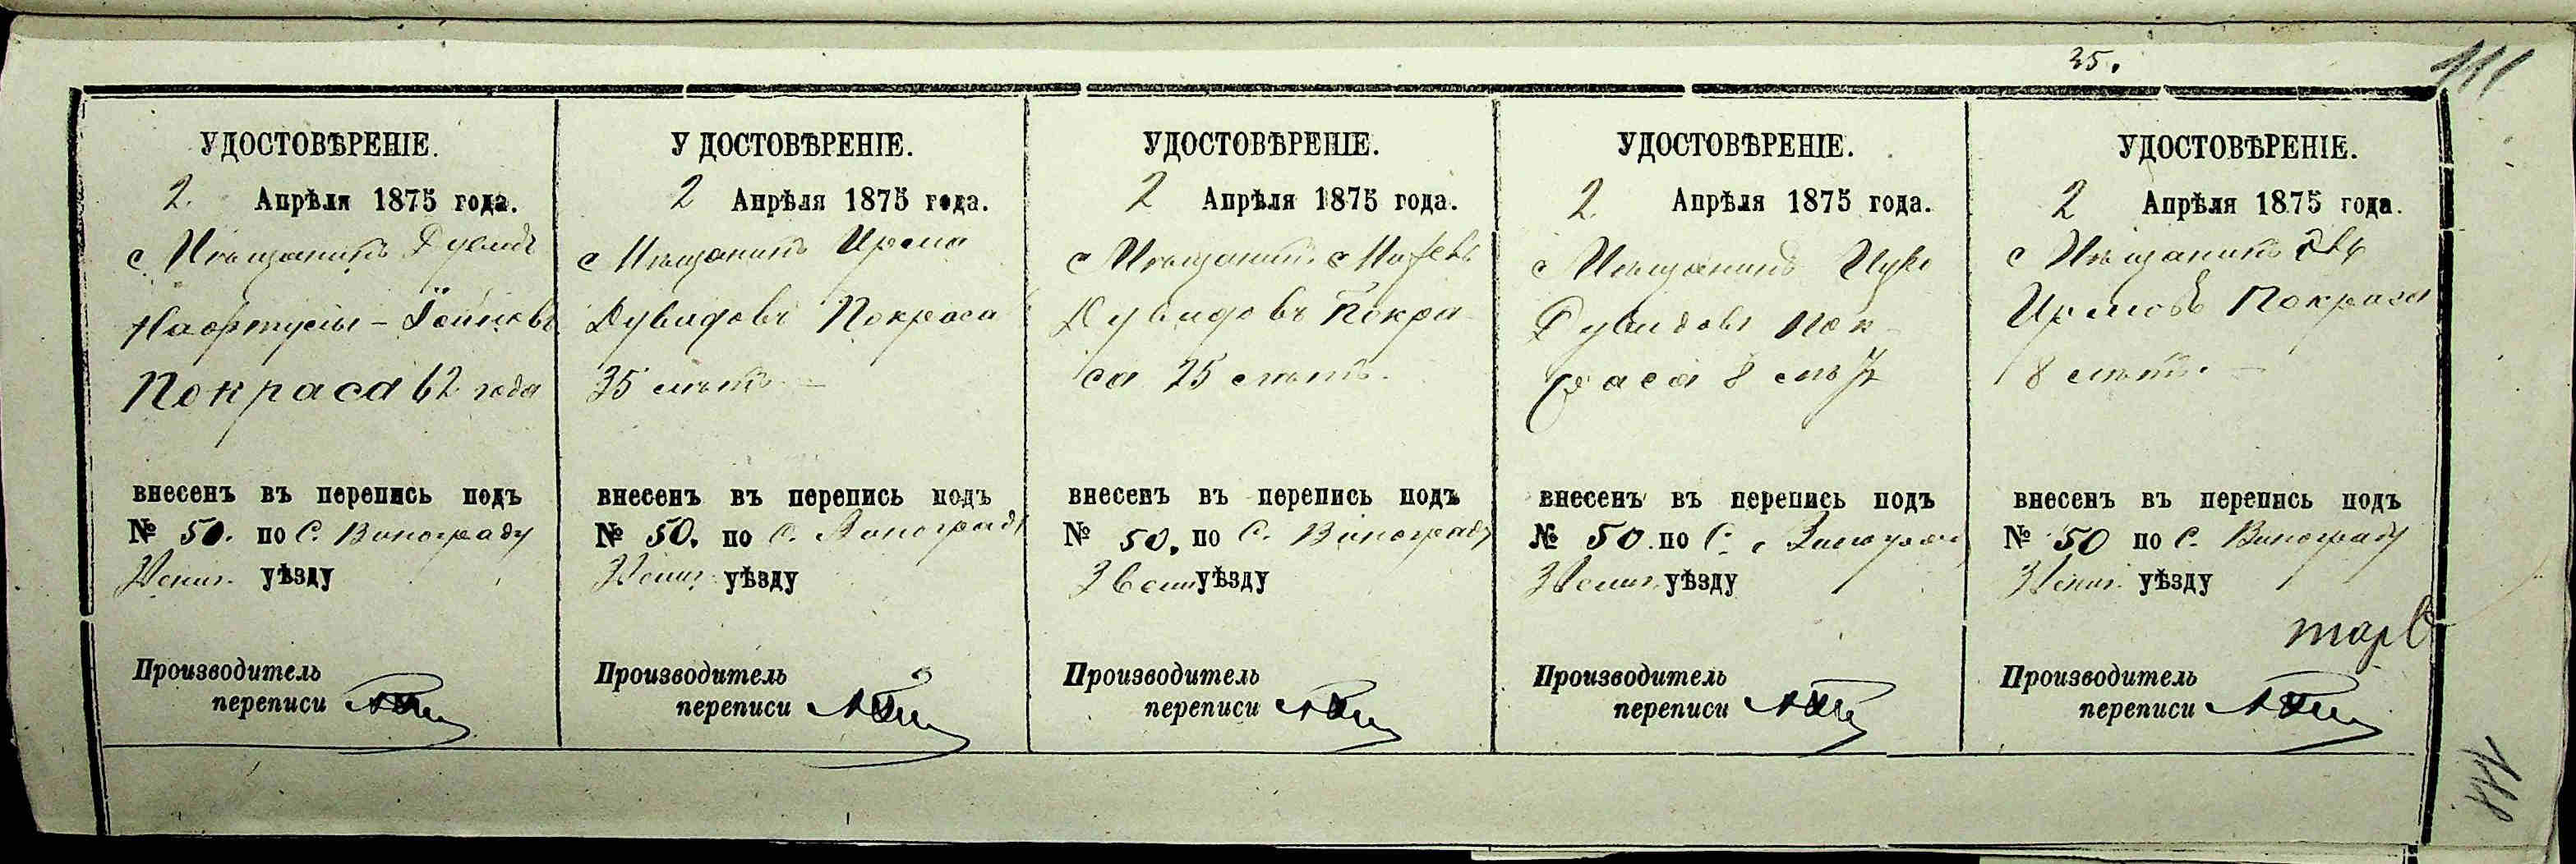 25.
111
УДОСТОВѢРЕНІЕ.
2. Апрѣля 1875 года.
Мѣщанинъ Дувидъ
Нафтулы-
Покраса 62 года
внесенъ въ перепись подъ
№ 50. по С. Винограду
Звениг. уѣзду
Производитель
переписи
У ДОСТОВѢРЕНІЕ.
2 Апрѣля 1875 года.
Мѣщанинъ Ирма
Дувидовъ Покраса
35 лѣтъ
внесенъ въ перепись подъ
№ 50. по С. Винограду
Звениг. уѣзду
Производитель
переписи
УДОСТОВѢРЕНІЕ.
2 Апрѣля 1875 года.
Мѣщанинъ
Дувидовъ Покра
са 25 лѣтъ.
внесенъ въ перепись подъ
№ 50. по С. Винограду
Звениг уѣзду
Производитель
переписи
УДОСТОВѢРЕНІЕ.
2 Апрѣля 1875 года.
Мѣщанинъ
Дувидовъ Пок-
раса 8 лѣтъ
внесенъ въ перепись подъ
№ 50. по С. Винограду
Звениг. уѣзду
Производитель
переписи
УДОСТОВѢРЕНІЕ.
2 Апрѣля 1875 года.
Мѣщанинъ
Ирмовъ Покраса
8 лѣтъ.
внесенъ въ перепись подъ
№ 50 по С. Винограду
Звениг. уѣзду
Производитель
переписи